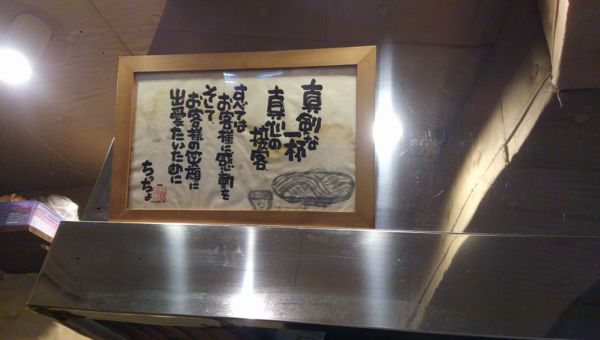 真剣な
一杯
真心の
接客
すべては
お客様に感動を
そして
お客様の笑顔に
出愛いたいために
ちっちょ